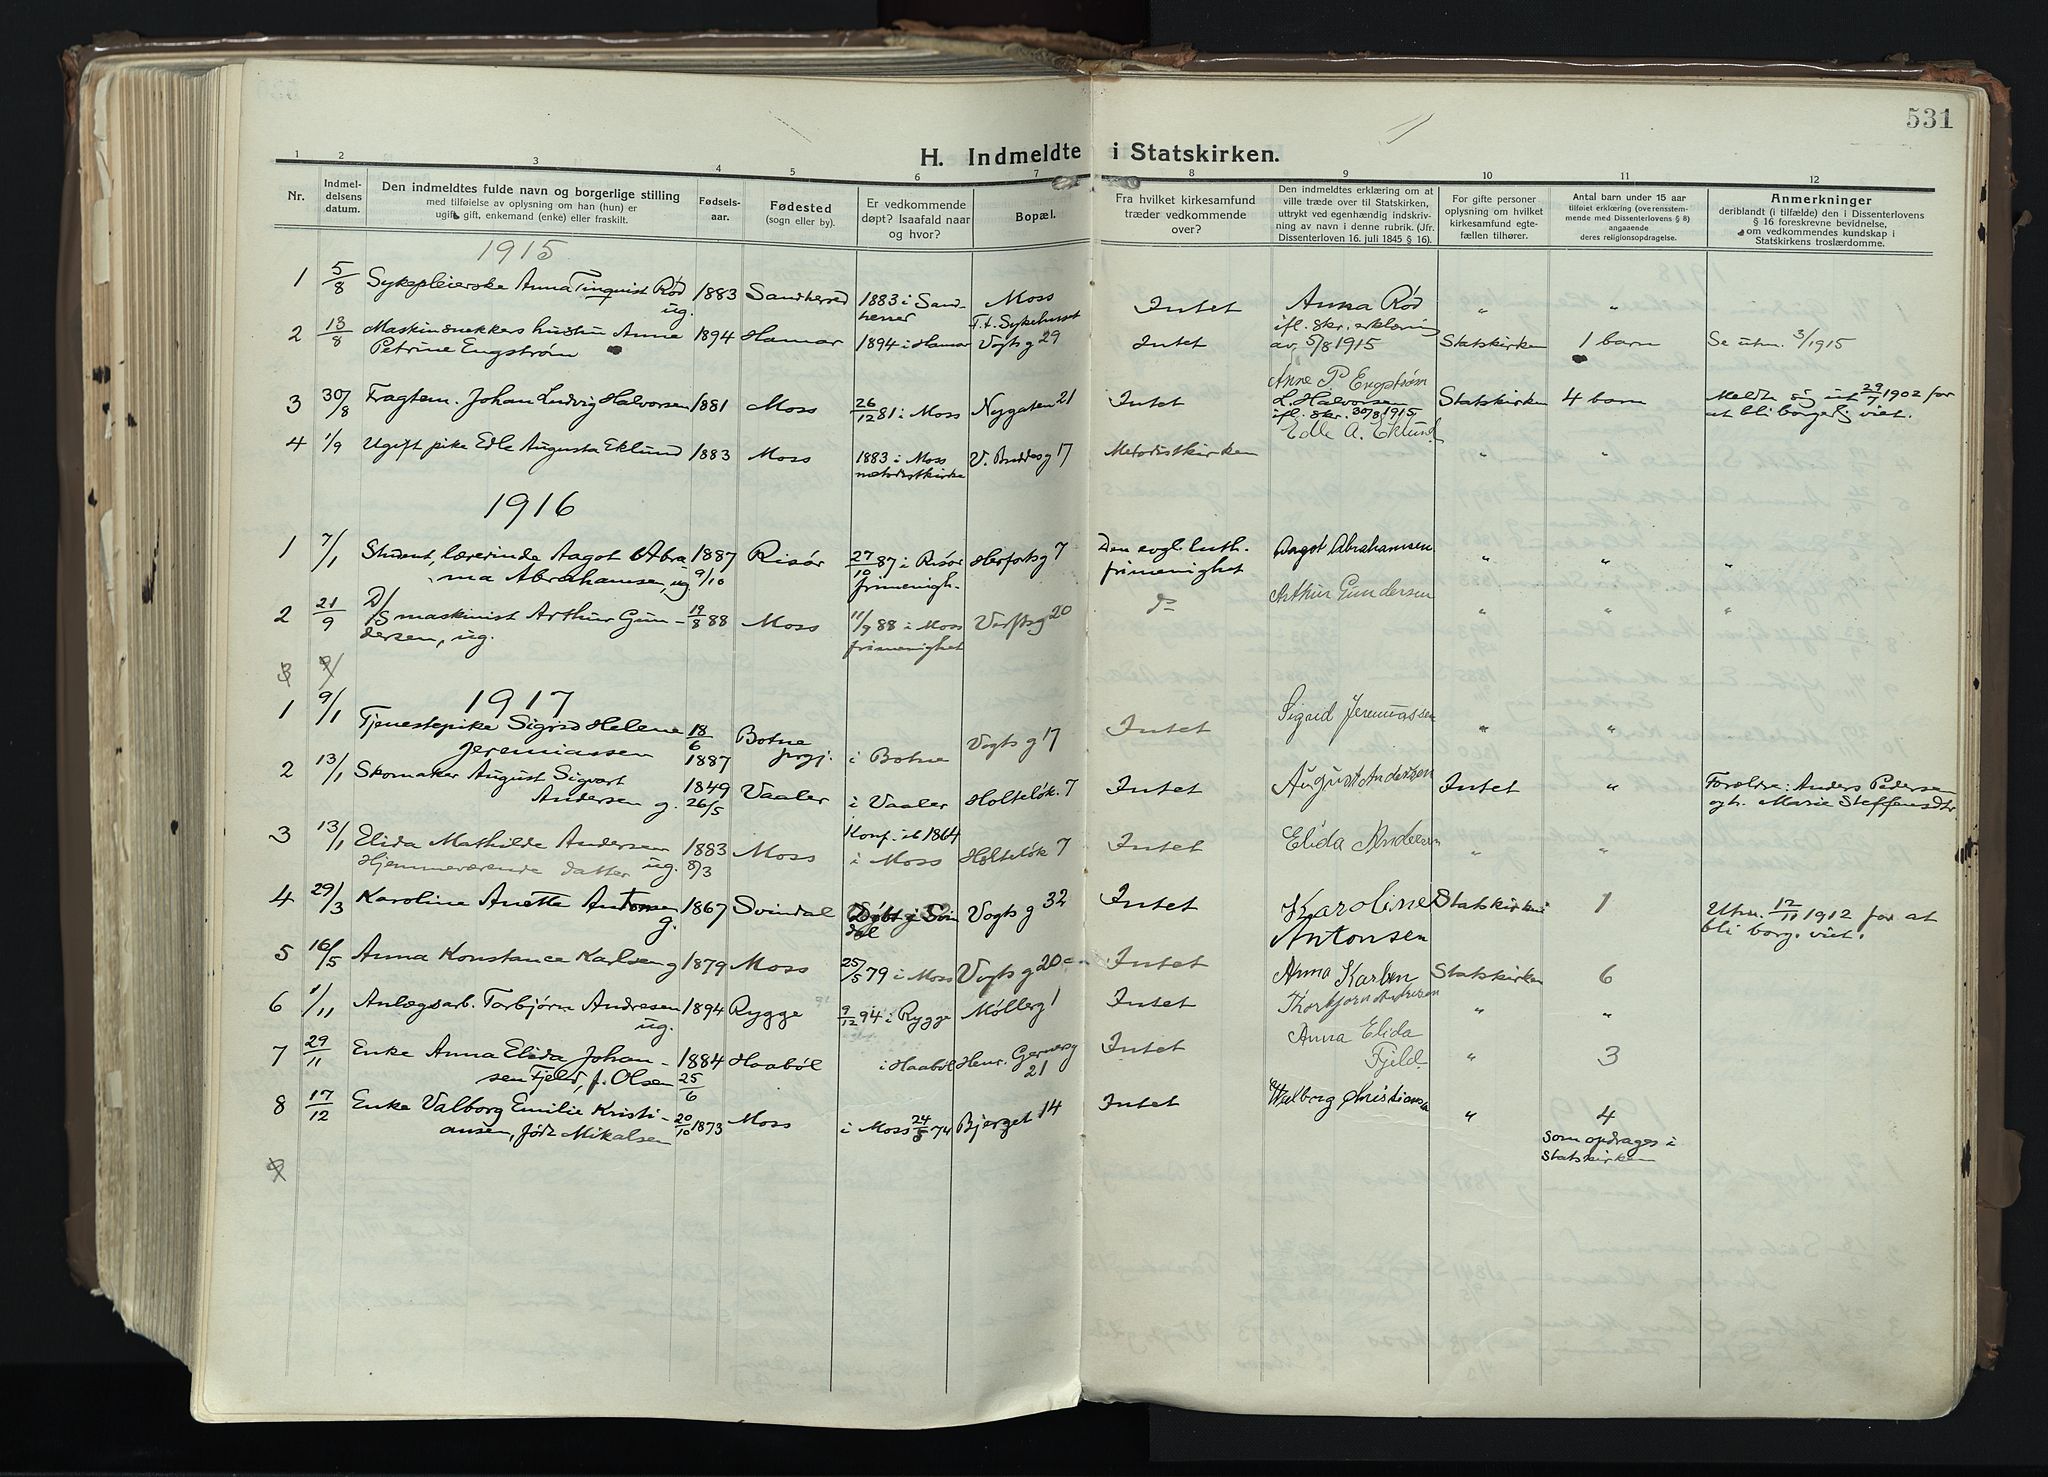 531
H. Indmeldte i Statskirken.
1 2 3 4 5 6 7 8 9 10 11 12
Nr.
Indmel-
delsens
datum.
Den indmeldtes fulde navn og borgerlige stilling
med tilføielse av oplysning om han (hun) er
ugift, gift, enkemand (enke) eller fraskilt.
Fødsels-
aar.
Fødested
(sogn eller by).
Er vedkommende
døpt? Isaafald naar
og hvor?
Bopæl.
Fra hvilket kirkesamfund
træder vedkommende
over?
Den indmeldtes erklæring om at
ville træde over til Statskirken,
uttrykt ved egenhændig indskriv-
ning av navn i denne rubrik. (Jfr.
Dissenterloven 16. juli 1845 § 16).
For gifte personer
oplysning om hvilket
kirkesamfund egte-
fællen tilhører.
Antal barn under 15 aar
tilføiet erklæring (overensstem-
mende med Dissenterlovens § 8)
angaaende
deres religionsopdragelse.
Anmerkninger
deriblandt (i tilfælde) den i Dissenterlovens
§ 16 foreskrevne bevidnelse,
om vedkommendes kundskap i
Statskirkens troslærdomme.
1915
1 5/8 Sykepleierske Anna Tinquist Rød ug. 1883 Sandherred 1883 i Sand- Moss Intet Anna Rød " "
herrer F.t. Sykehuset ifl. skr. erklæring
2 13/8 Maskinsnekkers hustru Anne 1894 Hamar 1894 i Hamar Vogts g 29 Intet av 5/8 1915 Statskirken 1 barn Se utm. 3/1915
Petrine Engstrøm Anne P Engstrøm
3 30/8 Fragtem. Johan Ludvig Halvorsen 1881 Moss 26/12 81 i Moss Nygaten 21 Intet L. Halvorsen Statskirken 4 barn Meldte sig ut 29/7 1902 for
ifl. skr. 30/8 1915 at bli borgerlig viet.
4 1/9 Ugift pike Edle Augusta Eklund 1883 Moss 1883 i Moss V. Buddes g 17 Metodistkirken Edle A. Eklund " "
metodistkirke
1916
1 7/1 Student, lærerinde Aagot Abra 1887 Risør 27/10 87 i Risør Herforts g 7 Den evgl. luth. Aagot Abrahamsen " " "
ma Abrahamsen, ug. 9/10 frimenigh. frimenighet
2 21/9 D/S maskinist Arthur Gun- 19/8 88 Moss 11/9 88 i Moss Værfts g 20 do Arthur Gundersen " " "
dersen, ug. frimenighet
3
1917
1 9/1 Tjenestepike Sigrid Helene 18/6 Botne i Botne Vogts g 17 Intet Sigrid Jeremiassen " "
Jeremiassen 1887 prgj.
2 13/1 Skomaker August Sigvart 1849 Vaaler i Vaaler Holteløk. 7 Intet August Andersen Intet " Forældre: Anders Pedersen
Andersen g. 26/5 Konf. ib 1864 og h. Marie Steffensdtr.
3 13/1 Elida Mathilde Andersen 1883 Moss i Moss Holteløk 7 Intet Elida Andersen " "
Hjemmeværende datter ug. 8/3
4 29/3 Karoline Anette Antonsen 1867 Svindal Døbt i Svin Vogts g 32 Intet Karoline Statskirken 1 Utm. 12/11 1912 for at
g. dal Antonsen bli borg. viet.
5 16/5 Anna Konstance Karlsen g 1879 Moss 25/5 79 i Moss Vogts g 20 Intet Anna Karlsen Statskirken 6
6 1/11 Anlægsarb. Torbjørn Andresen 1894 Rygge 9/12 94 i Rygge Møllerg 1 Intet Thorbjørn Andresen " "
ug.
7 29/11 Enke Anna Elida Johan- 1884 Haabøl i Haabøl Henr. Gernersg Intet Anna Elida " 3
sen Fjeld, f. Olsen 25/6 21 Fjeld
8 17/12 Enke Valborg Emilie Kristi- 20/10 1873 Moss i Moss 24/5 74 Bjerget 14 Intet Walborg Christiansen " 4
ansen, født Mikalsen som opdrages i
Statskirken